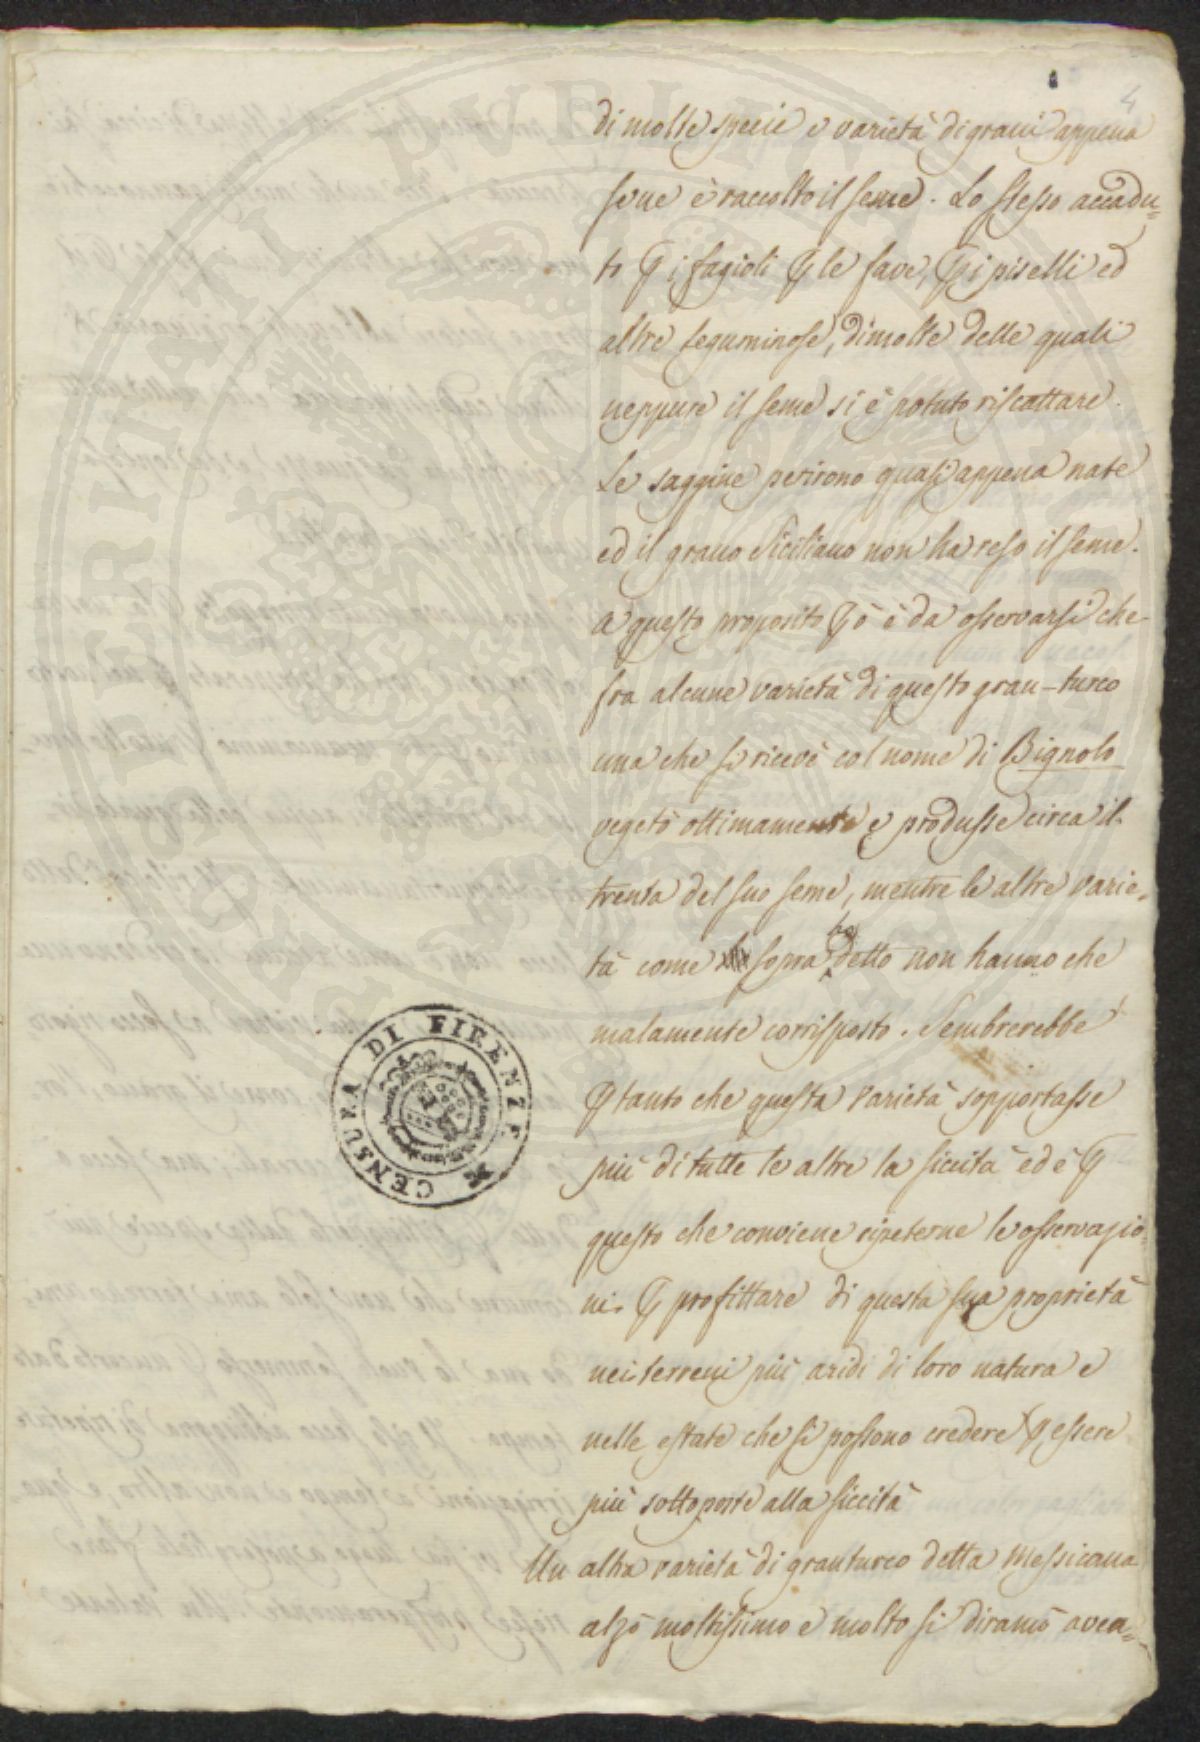 4
di molte specie e varietà di grani appena
se ne è raccolto il seme. Lo stesso accadu=
to P i fagioli P le fave, P i piselli ed
altre leguminose, di molte delle quali
neppure il seme si è potuto riscattare.
Le saggine perirono quasi appena nate
ed il grano Siciliano non ha reso il seme.
A questo proposito Pò è da osservarsi che
fra alcune varietà di questo gran-turco
una che si ricevè col nome di Bignolo
vegetò ottimamente e produsse circa il
trenta del suo seme, mentre le altre varie=
tà come sopra ho detto non hanno che
malamente corrisposto. Sembrerebbe
P tanto che questa varietà sopportasse
più di tutte le altre la siccità ed è P
questo che conviene ripeterne le osservazio=
ni P profittare di questa sua proprietà
nei terreni più aridi di loro natura e
nelle estate che si possono credere P essere
più sottoposte alla siccità
Un altra varietà di granturco detta Messicana
alzò moltissimo e molto si diramò avea=
CENSURA DI FIRENZE
PERITI PUBLICAE PROSPERITATI AUGENDAE